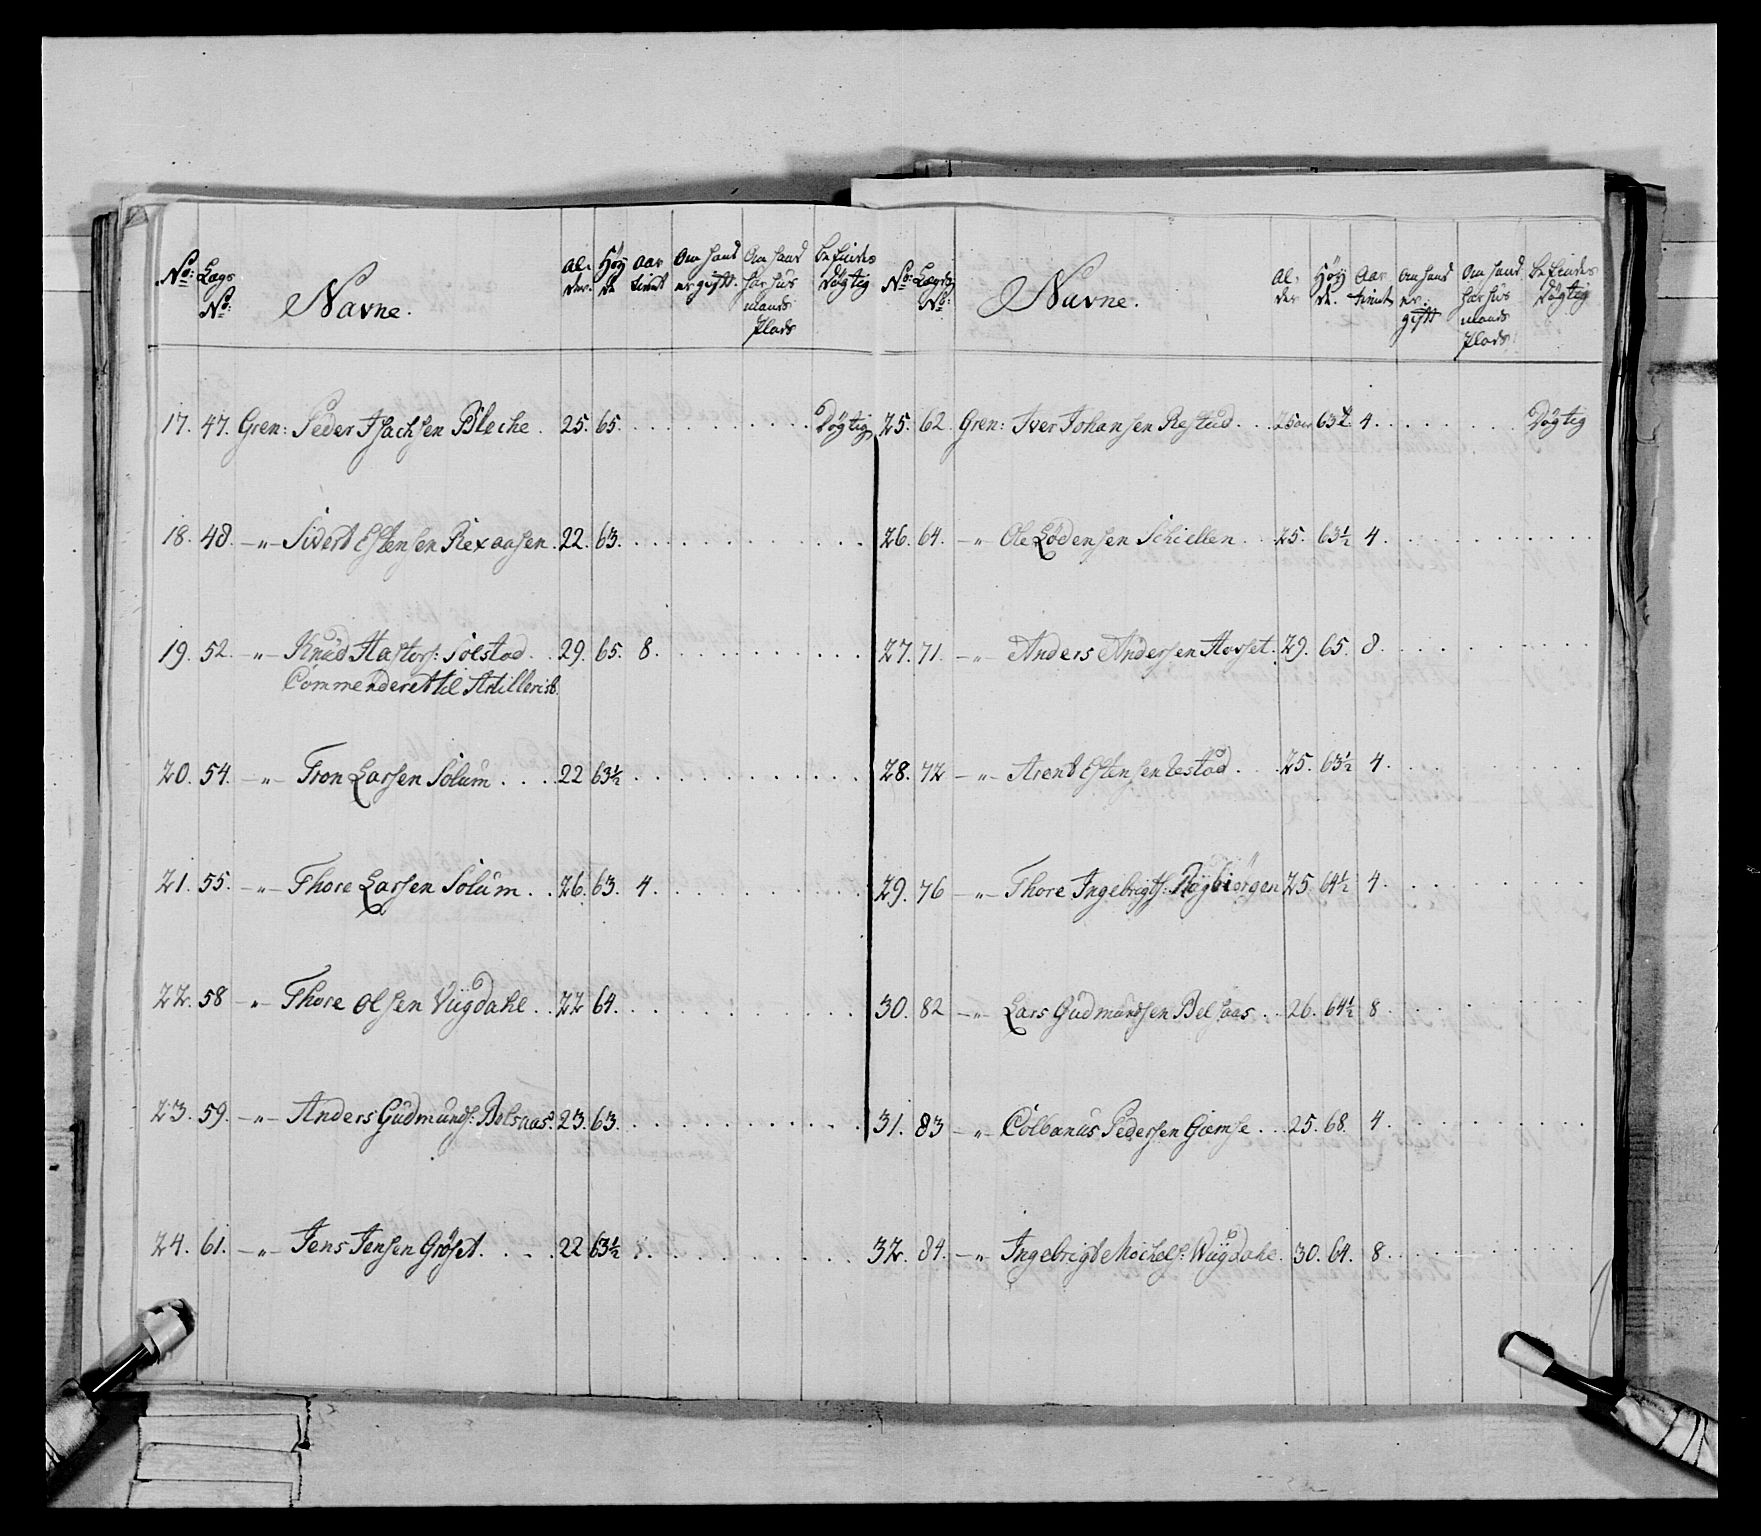 No: Lægs No: Navne. Al-der. Høy de Aar tient Om hand er gift. Om hand har huus mands Plads befindes Døgtig
17. 47. Gren: Peder Isachsen Bleche. 25. 65. Døgtig
18. 48. -"- Sivert Estensen Rexaasen. 22. 63.
19. 52. -"- Knud Hastors: Solstad. 29. 65. 8.
Commenderet til Artilleriet.
20. 54. -"- Tron Larsen Solum. 22 63½
21. 55. -"- Thore Larsen Solum. 26. 63. 4.
22. 58 -"- Thore Olsen Viigdahl. 22 64.
23. 59. -"- Anders Gudmunds: Belsaas. 23. 63.
24. 61. -"- Jens Jensen Grøset. 22 63½
No: Lægds No: Navne. Al-der Høy de. Aar tient Om hand er. gift Om hand har huus mands Plads. befindes Døgtig
25. 62. Gren: Iver Johansen Restad. 25 63½ 4. Døgtig
26. 64. -"- Ole Lodensen Schiellen. 25. 63½ 4.
27. 71. -"- Anders Andersen Hovset. 29. 65. 8.
28. 72 -"- Arent Estensen 25. 63½ 4.
29. 76 -"- Thore Ingebrigts: Røgbiørgen 25. 64½ 4.
30. 82 -"- Lars Gudmundsen Belsaas. 26. 64½ 8
31. 83 -"- Colbanus Pedersen Giemse. 25. 68. 4.
32. 84. -"- Ingebrigt Michels: Wiigdahl. 30. 64. 8.